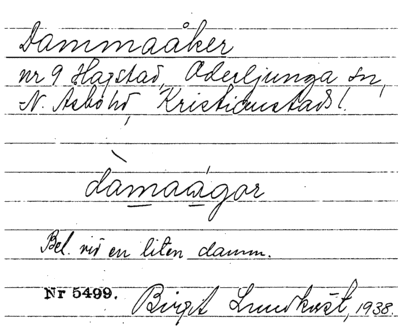 Dammaåker
nr 9 Hagstad, Oderljunga sn,
N. Åsbo hd, Kristianstads l.
dàmaágor
Bel. vid en liten damm.
Nr 5499. Birgit Lundkvist, 1938.